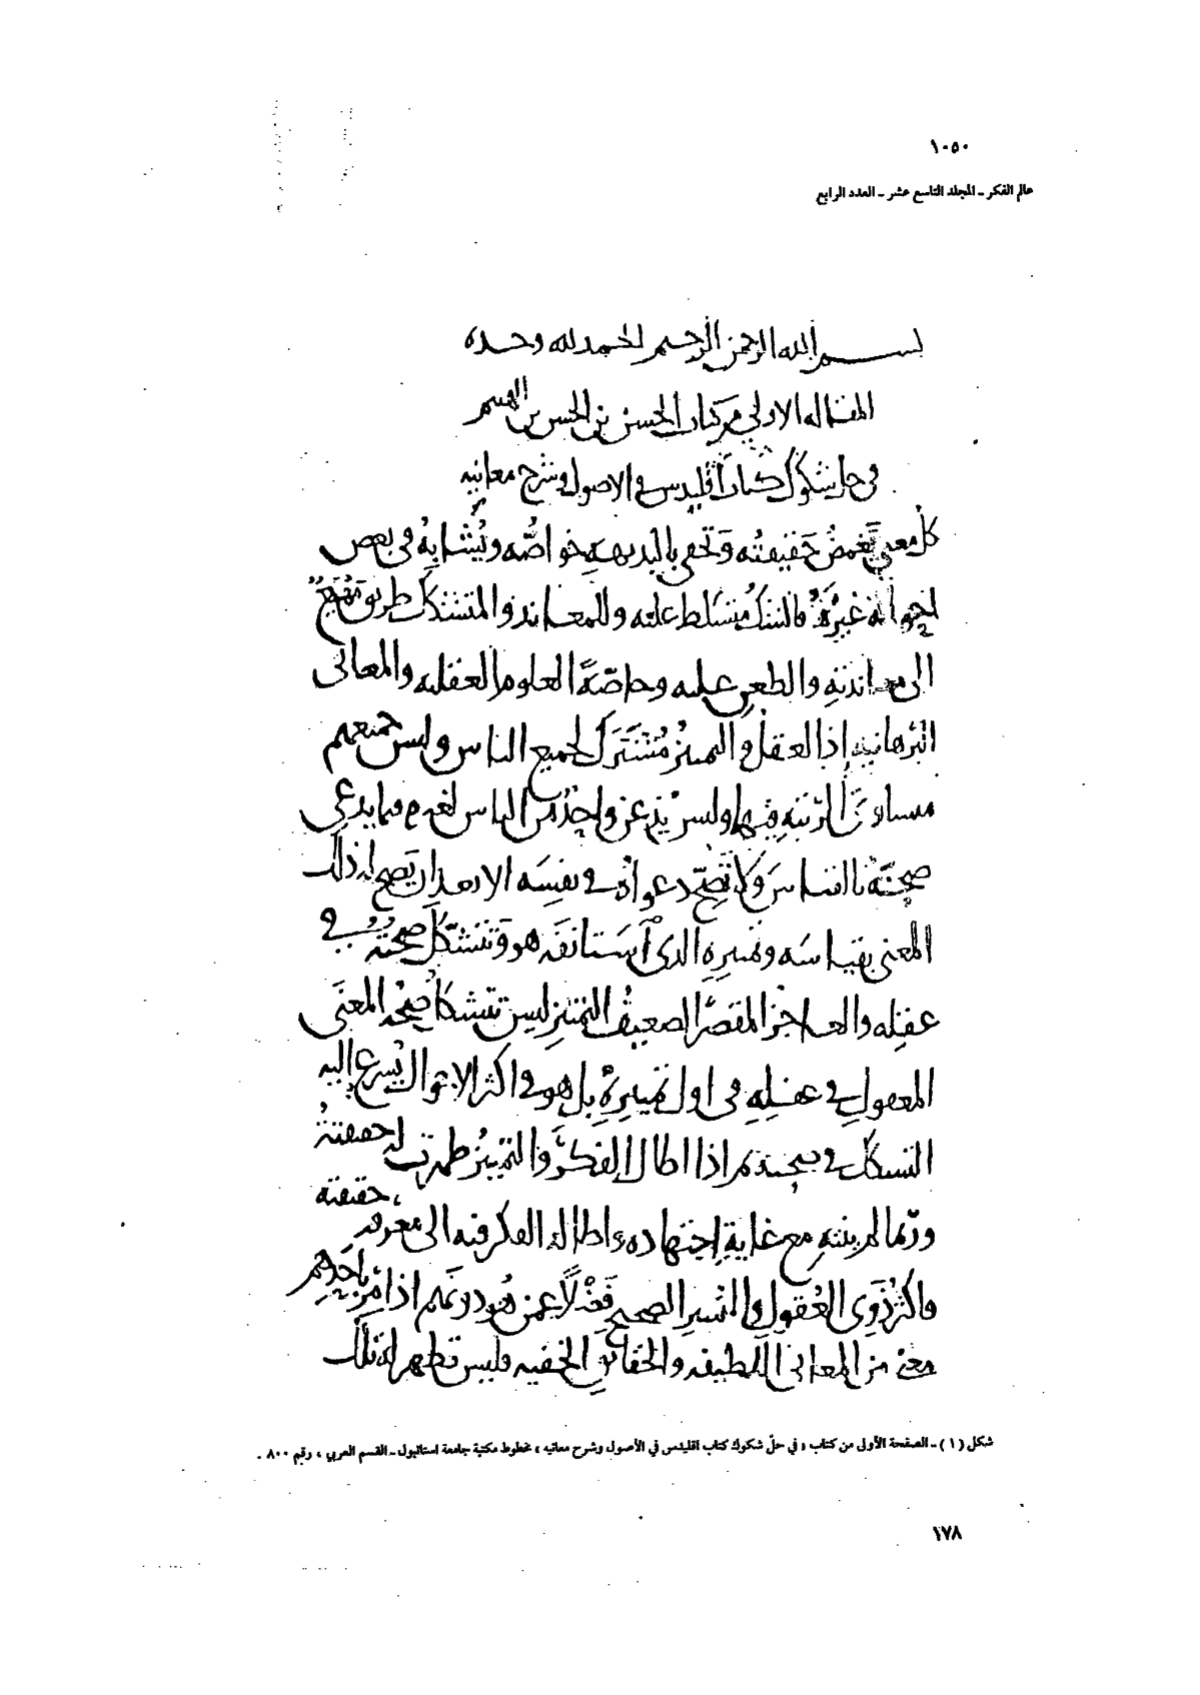 ١٠٥٠
عالم الفكر ـ المجلد التاسع عشر ـ العدد الرابع
بسم الله الرحمن الرحيم الحمد لله وحده
المقاله الاولى من كتاب الحسن بن الحسن بن الهيثم
في حل شكوك كتاب اقليدس في الاصول وشرح معانيه
كل معنى تغمض حقيقته وتخفى بالبديهه خواصه ويشابه في بعض
احواله غيره فالشك متسلط عليه وللمعاند والمتشكك طريق مهيع
الى معاندته والطعن عليه وخاصة العلوم العقليه والمعاني
البرهانيه اذ العقل والتمييز مشترك لجميع الناس وليس جميعهم
متساوي الرتبه فيها وليس يذعن واحد من الناس لغيره فيما يدعي
صحته بالقياس ولا تصح دعواه في نفسه الا بعد ان يصح له ذلك
المعنى بقياسه وتمييزه الذي استانفه هو وتتشكل صحته في
عقله والعاجز المقصر الضعيف التمييز ليس تتشكل صحة المعنى
المعقول في عقله في اول تمييزه بل هو في اكثر الاحوال يسرع اليه
التشكك في صحته ثم اذا اطال الفكر والتمييز ظهرت له حقيقته
حقيقته
وربما لم ينته مع غاية اجتهاده واطالة الفكر فيه الى معرفه
واكثر ذوي العقول والتمييز الصحيح فضلا عمن هو دونهم اذا مر باحدهم
معنى من المعاني اللطيفه والحقائق الخفيه فليس تظهر له تلك
شكل (١) ـ الصفحة الأولى من كتاب «في حلّ شكوك كتاب اقليدس في الأصول وشرح معانيه» مخطوط مكتبة جامعة استانبول ـ القسم العربي، رقم ٨٠٠.
١٧٨